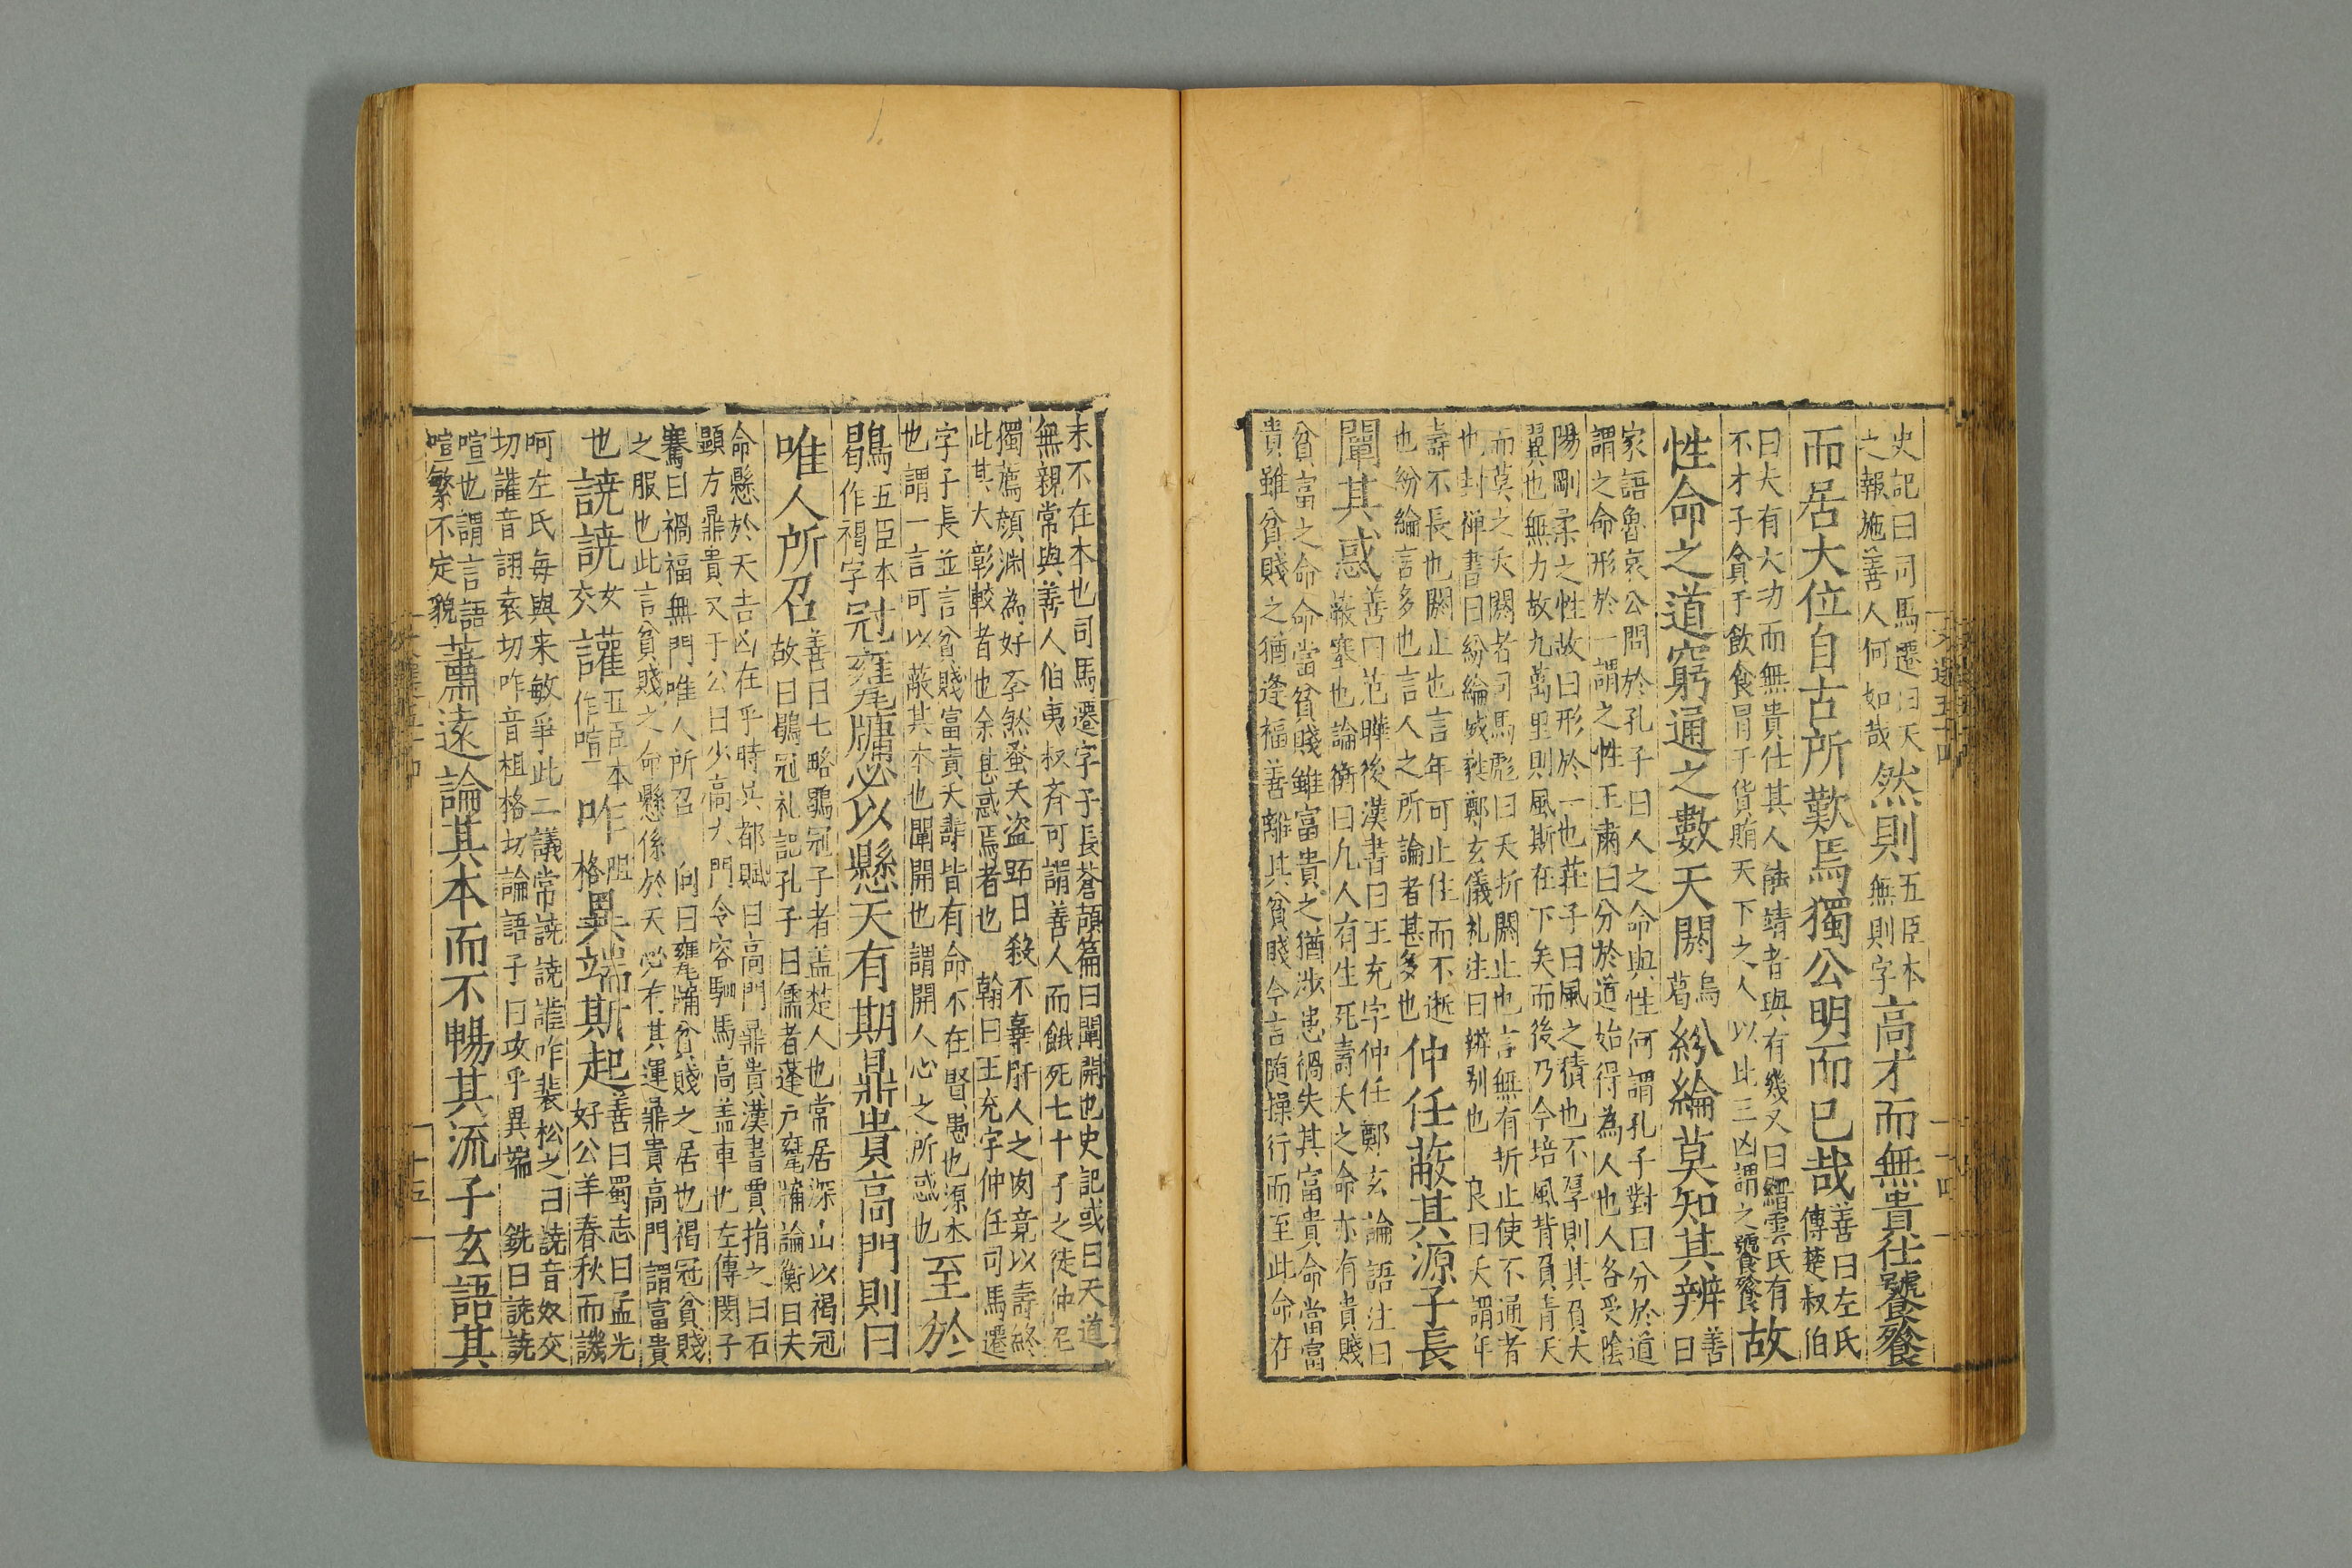 史記曰司馬遷曰天
之報施善人何如哉
然則
五臣本
無則字
高才而無貴仕饕餮
而居大位自古所歎焉獨公明而已哉
善曰左氏
傳楚叔伯
曰夫有大功而無貴仕其人能靖者與有幾又曰縉雲氏有
不才子貪于飲食冐于貨賄天下之人以此三凶謂之饕餮
故
性命之道窮通之數夭閼
烏
葛
紛綸莫知其辨
善
曰
家語魯哀公問於孔子曰人之命與性何謂孔子對曰分於道
謂之命形於一謂之性王肅曰分於道始得為人也人各受陰
陽剛柔之性故曰形於一也莊子曰風之積也不厚則其負大
翼也無力故九萬里則風斯在下矣而後乃今培風背負青天
而莫之夭閼者司馬彪曰夭折閼止也言無有折止使不通者
也封禅書曰紛綸威蕤鄭玄儀礼注曰辨别也 良曰夭謂年
壽不長也閼止也言年可止住而不逝
也紛綸言多也言人之所論者甚多也
仲任蔽其源子長
闡其惑
善曰范曄後漢書曰王充字仲任鄭玄論語注曰
蔽塞也論衡曰凡人有生死壽夭之命亦有貴賤
貧富之命命當貧賤雖富貴之猶涉患禍失其富貴命當富
貴雖貧賤之猶逢福善離其貧賤今言随操行而至此命在
末不在本也司馬遷字子長蒼頡篇曰闡開也史記或曰天道
無親常與善人伯夷叔齊可謂善人而餓死七十子之徒仲尼
獨薦顏渊為好斈然蚤夭盗跖日殺不辜肝人之肉竟以壽終
此其大彰較者也余甚惑焉者也 翰曰王充字仲任司馬遷
字子長並言貧賤富貴夭壽皆有命不在賢愚也源本
也謂一言可以蔽其本也闡開也謂開人心之所惑也
至於
鶡
五臣本
作褐字
冠甕牖必以懸天有期鼎貴高門則曰
唯人所召
善曰七略鶡冠子者盖楚人也常居深山以褐冠
故曰鶡冠礼記孔子曰儒者蓬戸甕牖論衡曰夫
命懸於天吉凶在乎時呉都賦曰高門鼎貴漢書賈捐之曰石
顕方鼎貴又于公曰少高大門令容駟馬高盖車也左傳閔子
騫曰禍福無門唯人所召 向曰甕牖貧賤之居也褐冠貧賤
之服也此言貧賤之命懸係於天必有其運鼎貴高門謂富貴
也
譊譊
女
交
讙
五臣本
作喧
咋
咀
格
異端斯起
善曰蜀志曰孟光
好公羊春秋而譏
呵左氏毎與来敏爭此二議常譊譊讙咋裴松之曰譊音奴交
切讙音詡袁切咋音祖格切論語子曰攻乎異端 銑曰譊譊
喧也謂言語
喧繁不定貌
蕭遠論其本而不暢其流子玄語其
十五